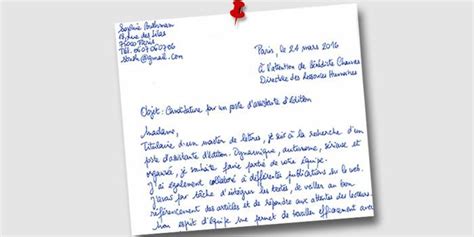 Sophie
13, rue des Lilas
75000 Paris
Tél. 06 07 06 07 06
@gmail.com
Paris, le 21 mars 2016
À l'attention de Bénédicte
Directrice des Ressources Humaines
Objet : Candidature pour un poste d'assistante d'édition
Madame,
Titulaire d'un master de lettres, je suis à la recherche d'un
poste d'assistante d'édition. Dynamique, autonome, sérieuse et
organisée, je souhaite faire partie de votre équipe.
J'ai également collaboré à différentes publications sur le web.
J'avais pour tâche d'intégrer les textes, de veiller au bon
référencement des articles et de répondre aux attentes des lecteurs.
Mon esprit d'équipe me permet de travailler efficacement avec